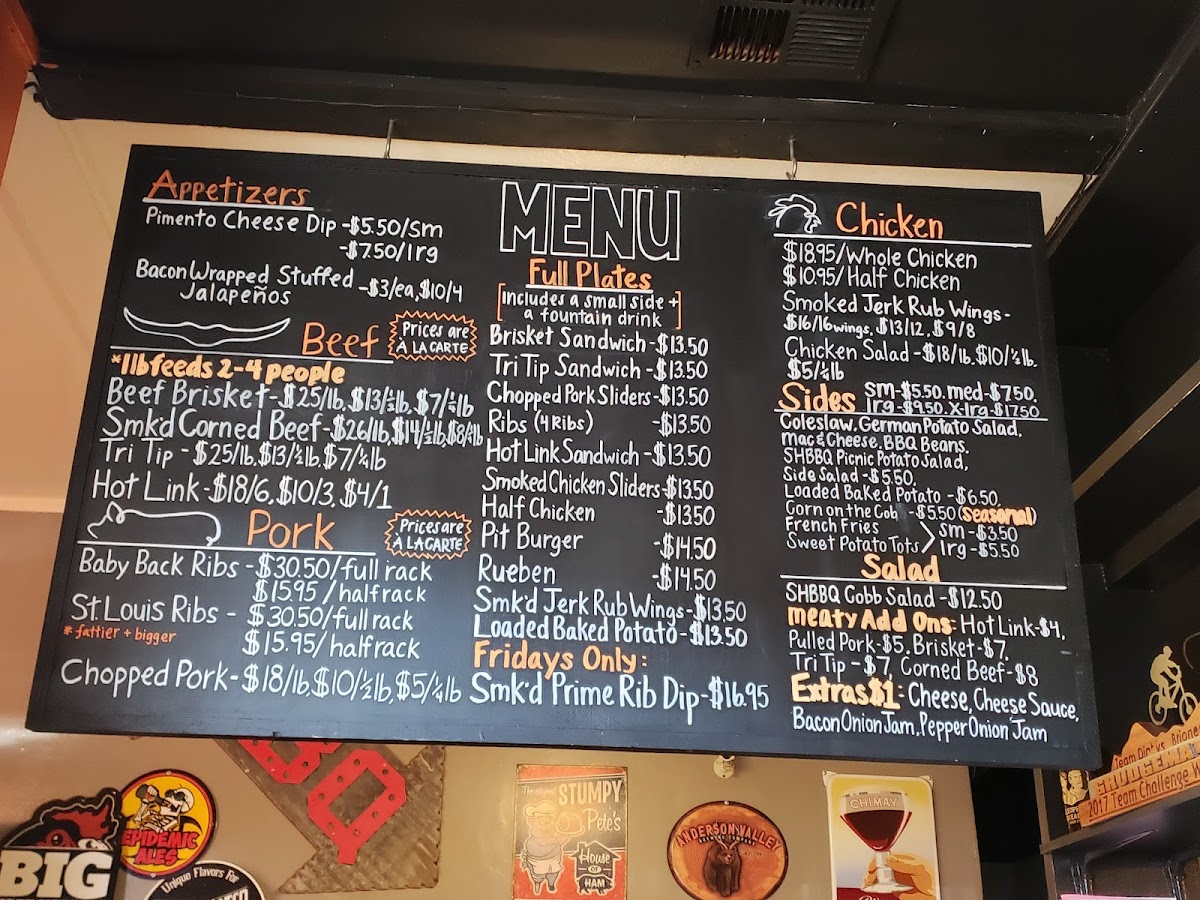 Appetizers
Pimento Cheese Dip -$5.50/sm
-$7.50/lrg
Bacon Wrapped Stuffed
Jalapeños -$3/ea, $10/4
Beef
Prices are
À LA CARTE
*1lb feeds 2-4 people
Beef Brisket-$25/lb, $13/½lb, $7/¼lb
Smkd Corned Beef-$26/lb, $14/½lb, $8/¼lb
Tri Tip - $25/lb, $13/½lb, $7/¼lb
Hot Link-$18/6, $10/3, $4/1
Pork
Prices are
À LA CARTE
Baby Back Ribs - $30.50/full rack
$15.95/half rack
St. Louis Ribs - $30.50/full rack
* fattier + bigger
$15.95/half rack
Chopped Pork-$18/lb, $10/½lb, $5/¼lb
MENU
Full Plates
[includes a small side +
a fountain drink]
Brisket Sandwich-$13.50
Tri Tip Sandwich-$13.50
Chopped Pork Sliders-$13.50
Ribs (4 Ribs) -$13.50
Hot Link Sandwich-$13.50
Smoked Chicken Sliders-$13.50
Half Chicken -$13.50
Pit Burger -$14.50
Rueben -$14.50
Smk'd Jerk Rub Wings-$13.50
Loaded Baked Potato-$13.50
Fridays Only:
Smk'd Prime Rib Dip-$16.95
Chicken
$18.95/Whole Chicken
$10.95/Half Chicken
Smoked Jerk Rub Wings-
$16/16 wings, $13/12, $9/8
Chicken Salad-$18/lb, $10/½lb.
$5/¼lb
Sides sm-$5.50, med-$7.50,
lrg-$9.50, X-lrg-$17.50
Coleslaw, German Potato Salad,
Mac & Cheese, BBQ Beans,
SHBBQ Picnic Potato Salad,
Side Salad-$5.50,
Loaded Baked Potato -$6.50,
Corn on the Cob -$5.50 (Seasonal)
French Fries > sm-$3.50
Sweet Potato Tots lrg-$5.50
Salad
SHBBQ Cobb Salad-$12.50
Meaty Add Ons: Hot Link-$4,
Pulled Pork-$5, Brisket-$7,
Tri Tip-$7, Corned Beef-$8
Extras $1: Cheese, Cheese Sauce,
Bacon Onion Jam, Pepper Onion Jam
EPIDEMIC
ALES
BIG
Unique Flavors For
The original
STUMPY
Pete's
House
OF
HAM
ANDERSON VALLEY
BREWING COMPANY
CHIMAY
2017 Team Challenge